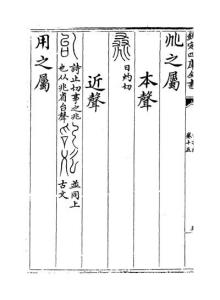 欽定四庫全書
卷十五
兆之屬
本聲
日約切
近聲
詩止切事之兆
也从兆省台聲
並同上
古文
用之屬